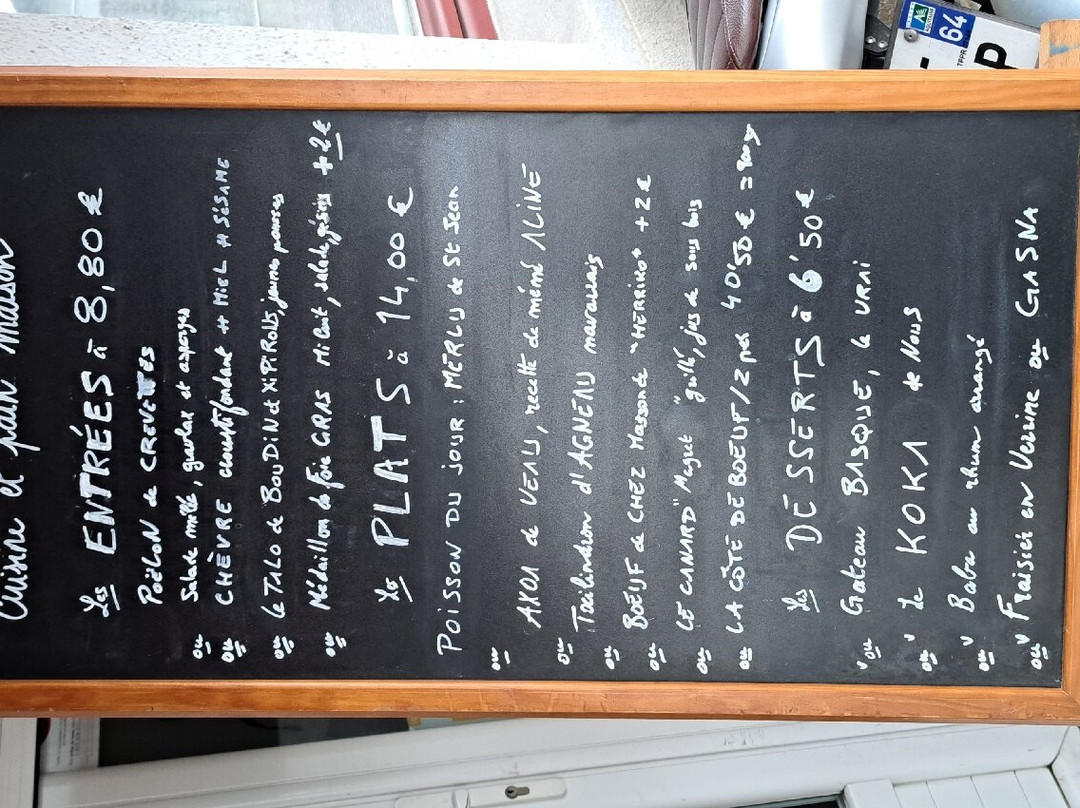 Cuisine et pain maison
Les ENTRÉES à 8,80 €
POËLON de CREVETTES
ou Salade mêlée, gravlax et asperges
ou CHÈVRE croustifondant ++ MIEL & SÉSAME
ou Le TALO de BOUDIN et XIPIROUS, jeunes pousses
ou Médaillon de foie GRAS mi cuit, salade, gésiers +2€
Les PLATS à 14,00 €
POISSON DU JOUR : MERLU de St Jean
ou AXOA de VEAU, recette de mémé ALINE
ou Tendron d'AGNEAU navarrais
ou BOEUF de CHEZ Masson de "HERRIKO" +2€
ou LE CANARD "Magret" grillé, jus de sous bois
ou LA CÔTE DE BOEUF/2 pers 40'50€
ou Les DESSERTS à 6'50€
ou Gateau BASQUE, le VRAI
ou Le KOKA de Nous
ou Baba au rhum arrangé
ou Fraisier en Verrine ou GASNA
64
P